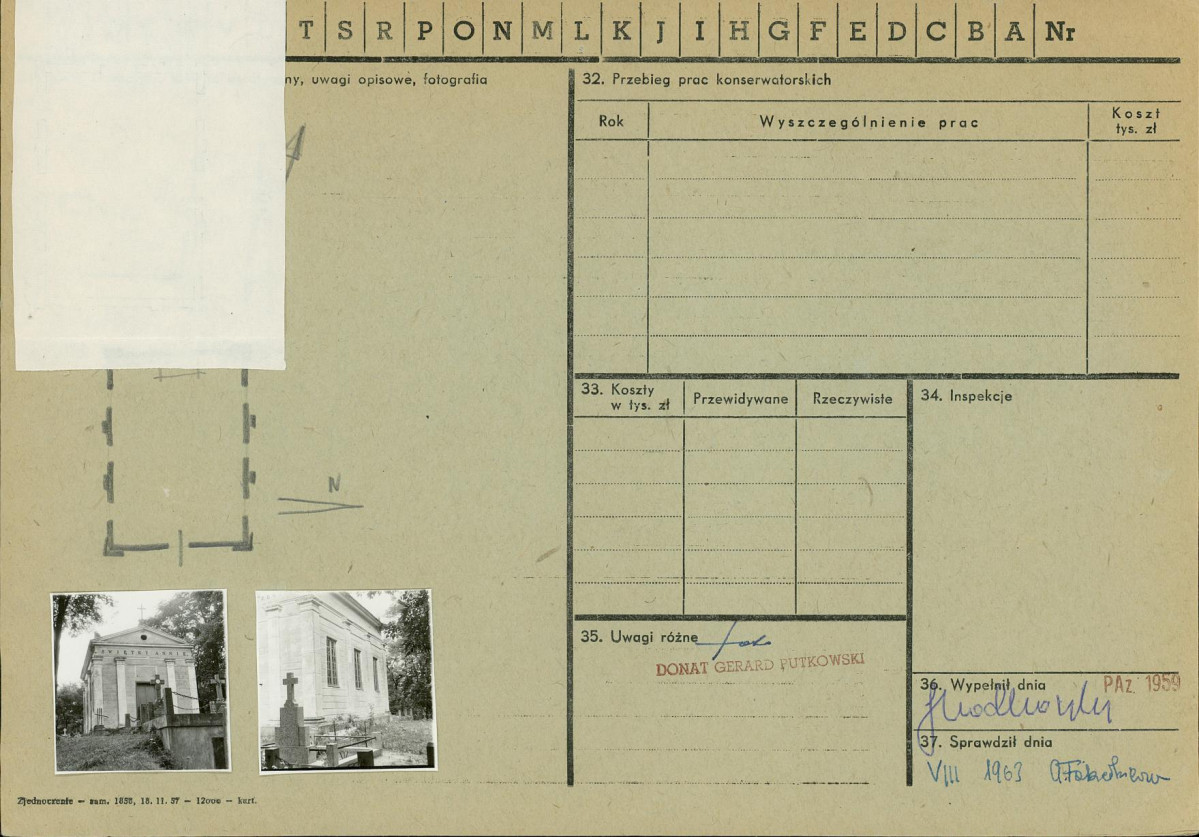 T S R P O N M L K J I H G F E D C B A Nr
ny, uwagi opisowe, fotografia
32. Przebieg prac konserwatorskich
Rok
Wyszczególnienie prac
Koszt
tys. zł
33. Koszty
w tys. zł
Przewidywane
Rzeczywiste
34. Inspekcje
N
35. Uwagi różne
DONAT GERARD PUTKOWSKI
36. Wypełnił dnia
PAŹ. 1959
37. Sprawdził dnia
VIII 1963
ŚWIĘTEJ ANNIE
Zjednoczenie — zam. 1858, 18. 11. 57 — 12000 — kart.